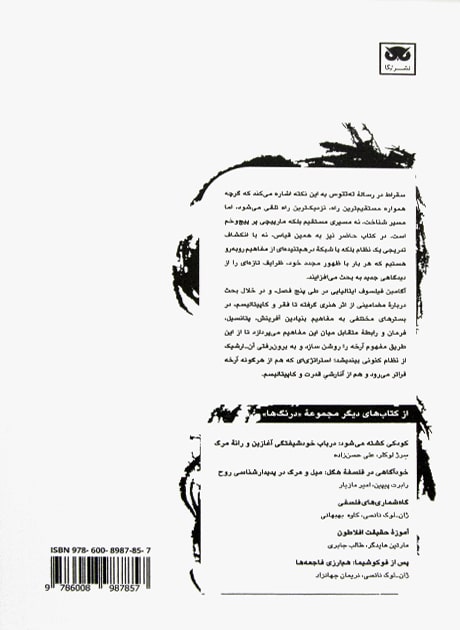 نشر لگا
سقراط در رسالهٔ ته‌تتوس به این نکته اشاره می‌کند که گرچه
همواره مستقیم‌ترین راه، نزدیک‌ترین راه تلقی می‌شود، اما
مسیر شناخت، نه مسیری مستقیم بلکه مارپیچی پر پیچ‌وخم
است. در کتاب حاضر نیز به همین قیاس، نه با انکشاف
تدریجی یک نظام بلکه با شبکهٔ درهم‌تنیده‌ای از مفاهیم روبه‌رو
هستیم که هر بار با ظهور مجدد خود، ظرایف تازه‌ای را از
دیدگاهی جدید به بحث می‌افزایند.
آگامبن فیلسوف ایتالیایی در طی پنج فصل، و در خلال بحث
دربارهٔ مضامینی از اثر هنری گرفته تا فقر و کاپیتالیسم، در
بسترهای مختلفی به مفاهیم بنیادین آفرینش، پتانسیل،
فرمان و رابطهٔ متقابل میان این مفاهیم می‌پردازد تا از این
طریق مفهوم آرخه را روشن سازد و به برون‌رفتی آن‌ـ‌ارشیک
از نظام کنونی بیندیشد؛ استراتژی‌ای که هم از هرگونه آرخه
فراتر می‌رود و هم از آنارشیِ قدرت و کاپیتالیسم.
از کتاب‌های دیگر مجموعهٔ «درنگ‌ها»
کودکی کشته می‌شود: درباب خودشیفتگی آغازین و رانهٔ مرگ
سرژ لوکلر، علی حسن‌زاده
خودآگاهی در فلسفهٔ هگل: میل و مرگ در پدیدارشناسی روح
رابرت پیپین، امیر مازیار
گاه‌شماری‌های فلسفی
ژان‌ـ‌لوک نانسی، کاوه بهبهانی
آموزهٔ حقیقت افلاطون
مارتین هایدگر، طالب جابری
پس از فوکوشیما: هم‌ارزی فاجعه‌ها
ژان‌ـ‌لوک نانسی، نریمان جهانزاد
ISBN 978- 600- 8987-85- 7
9 786008 987857